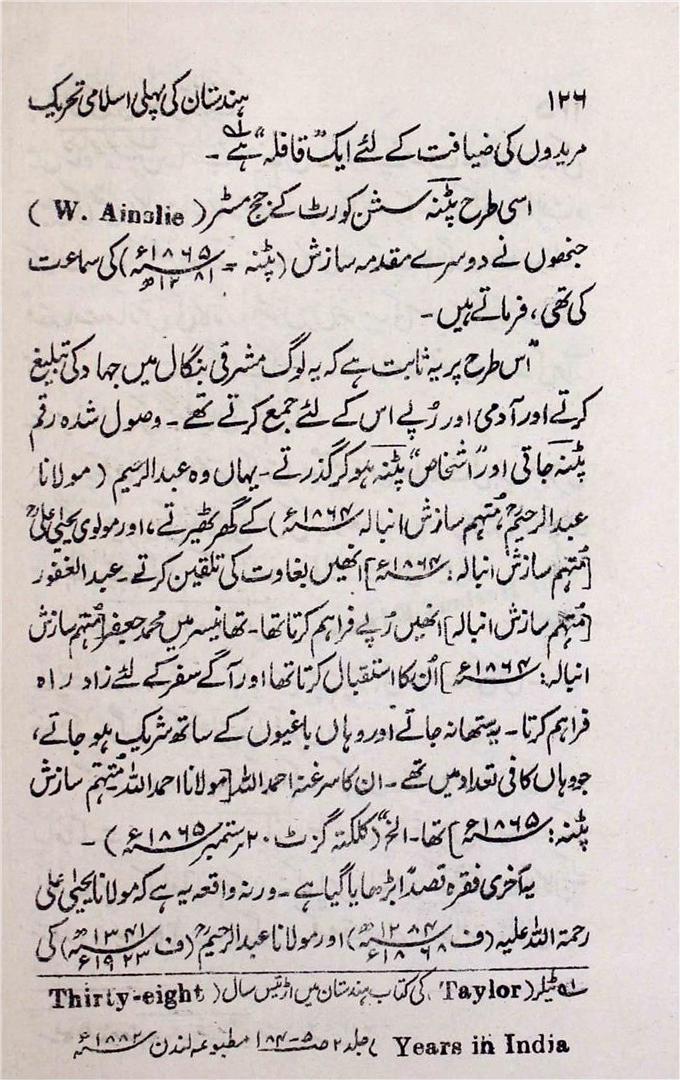 ۱۲۶ ہندستان کی پہلی اسلامی تحریک
مریدوں کی ضیافت کے لئے ایک "قافلہ" ہے۔
اسی طرح پٹنہ سشن کورٹ کے جج مسٹر (W. Ainslie)
جنھوں نے دوسرے مقدمہ سازش (پٹنہ = ۱۸۶۵ء ۱۲۸۱ھ) کی سماعت
کی تھی، فرماتے ہیں۔
"اس طرح پر یہ ثابت ہے کہ یہ لوگ مشرقی بنگال میں جہاد کی تبلیغ
کرتے اور آدمی اور رُپے اس کے لئے جمع کرتے تھے۔ وصول شدہ رقم
پٹنہ جاتی اور "اشخاص" پٹنہ ہو کر گذرتے۔ یہاں وہ عبدالرحیم (مولانا
عبدالرحیمؒ مُتہم سازش انبالہ ۱۸۶۴ء) کے گھر ٹھیرتے، اور مولوی یحییٰ علیؒ
[مُتہم سازش انبالہ: ۱۸۶۴ء] انھیں بغاوت کی تلقین کرتے۔ عبدالغفور
[مُتہم سازش انبالہ] انھیں رُپے فراہم کرتا تھا۔ تھانیسر میں محمد جعفر [مُتہم سازش
انبالہ: ۱۸۶۴ء] اُن کا استقبال کرتا تھا اور آگے سفر کے لئے زاد راہ
فراہم کرتا۔ یہ ستھانہ جاتے اور وہاں باغیوں کے ساتھ شریک ہو جاتے،
جو وہاں کافی تعداد میں تھے۔ ان کا سرغنہ احمد اللہ [مولانا احمد اللہ مُتہم سازش
پٹنہ: ۱۸۶۵ء] تھا۔ الخ" (کلکتہ گزٹ ۲۰ ستمبر ۱۸۶۵ء)۔
یہ آخری فقرہ قصداً بڑھایا گیا ہے۔ ورنہ واقعہ یہ ہے کہ مولانا یحییٰ علی
رحمۃ اللہ علیہ (ف ۱۲۸۴ھ ۱۸۶۸ء) اور مولانا عبدالرحیمؒ (ف ۱۳۴۱ھ ۱۹۲۳ء) کی
لہ ٹیلر (Taylor) کی کتاب ہندستان میں اڑتیس سال (Thirty-eight
Years in India) جلد ۲ ص ۵-۱۸۴ مطبوعہ لندن ۱۸۸۲ء